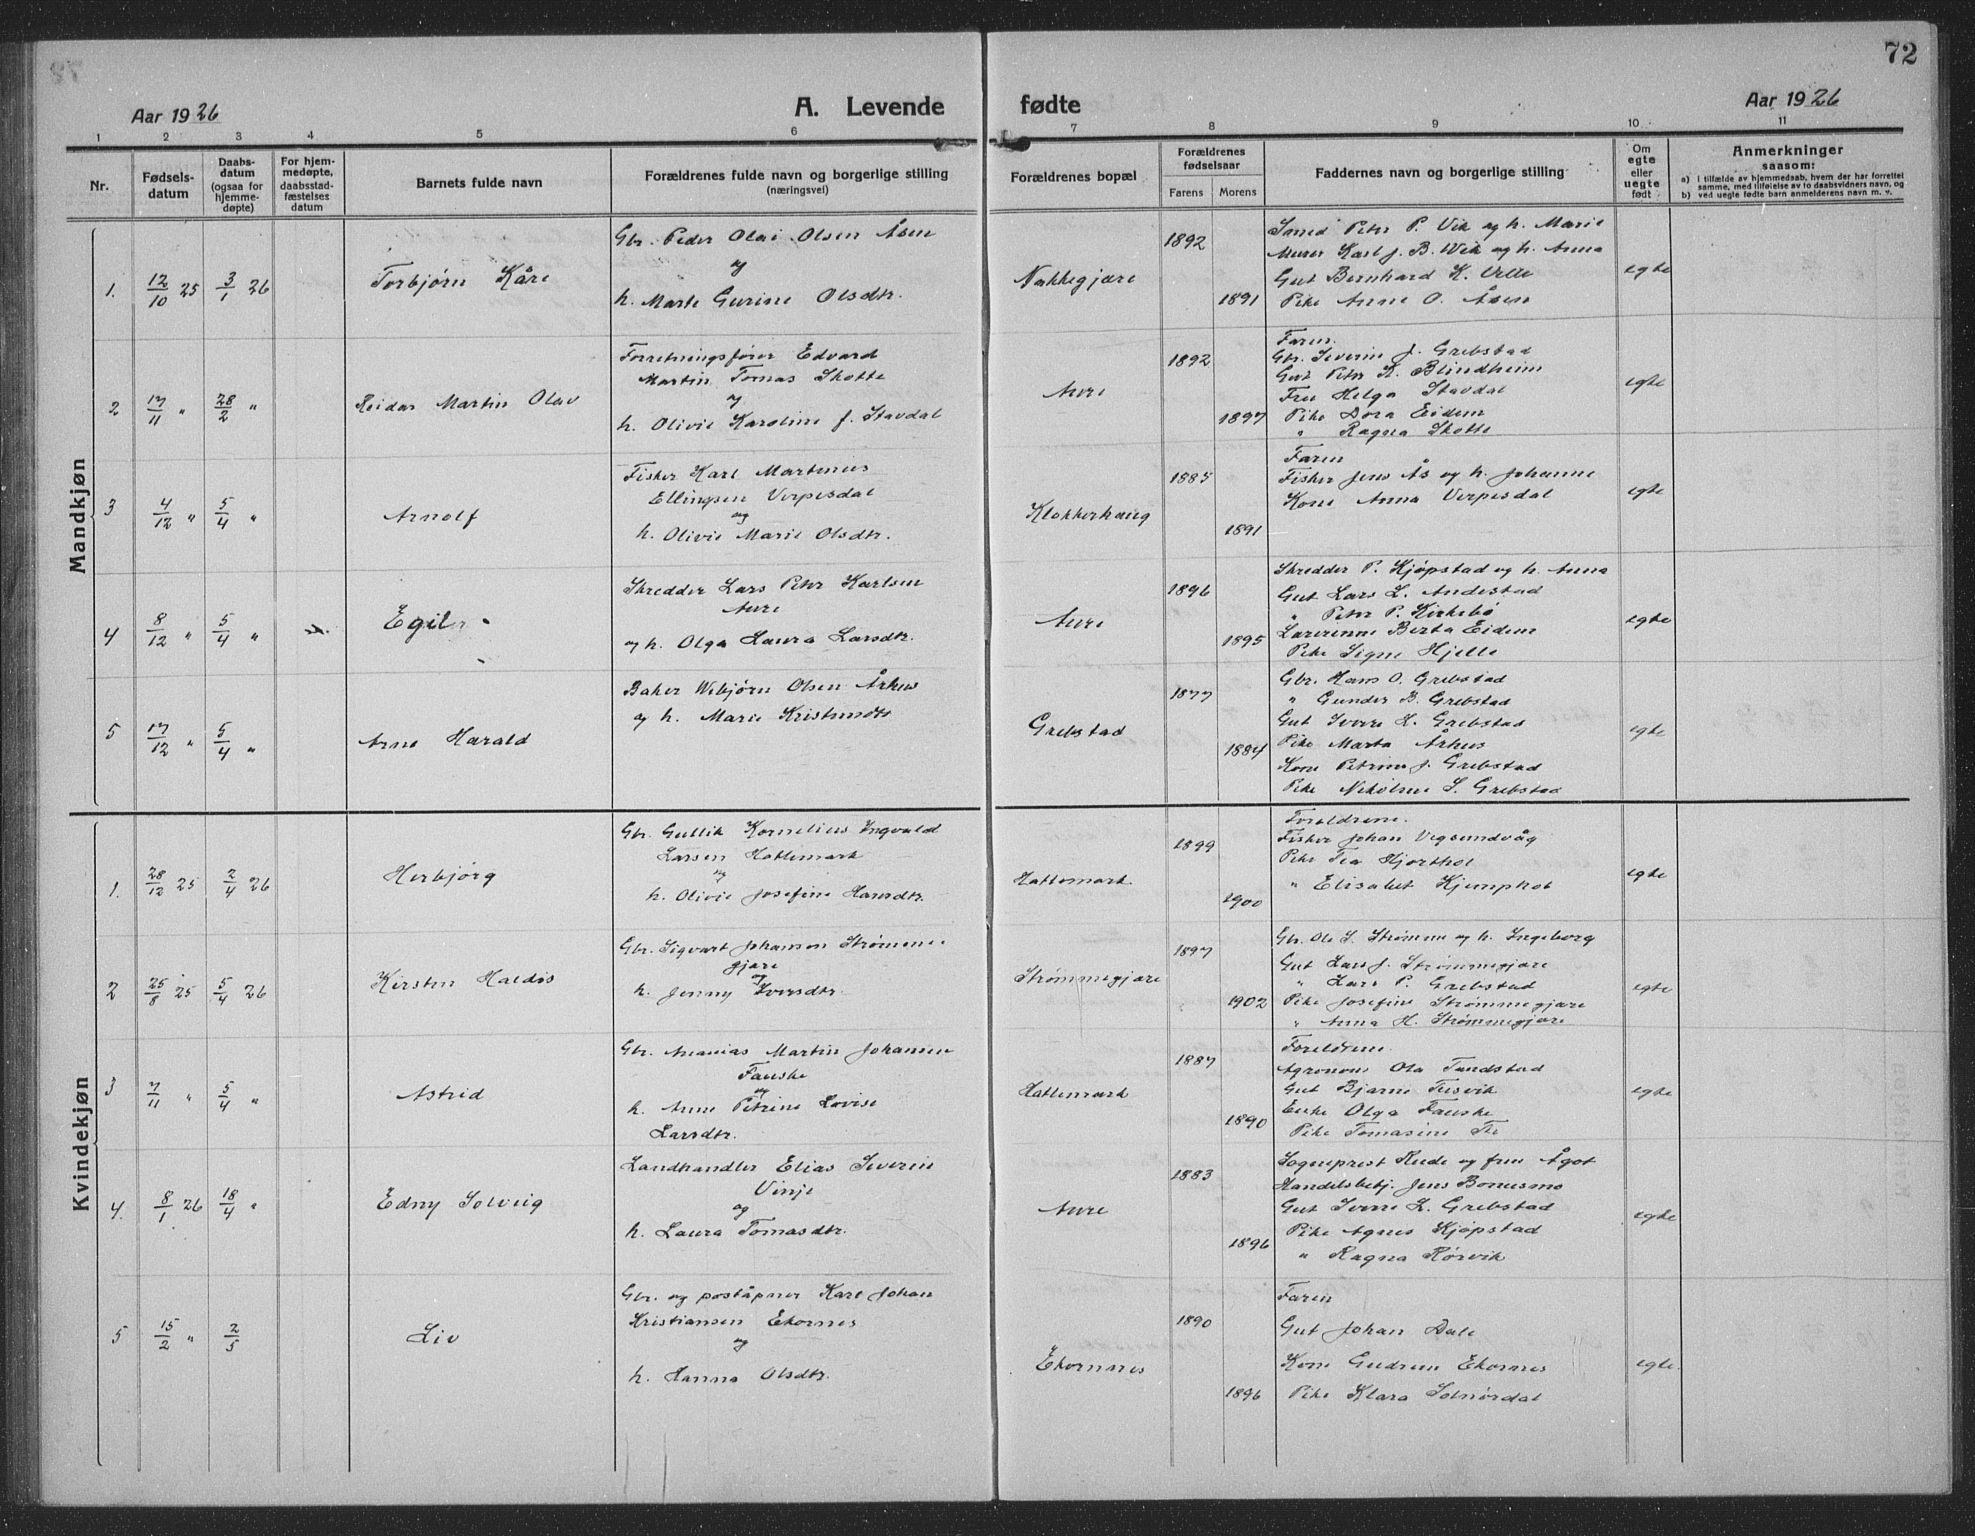 72
Aar 1926
A. Levende fødte
Aar 1926
1 2 3 4 5 6 7 8 9 10 11
Nr.
Fødselsdatum
Daabsdatum (ogsaa for hjemmedøpte)
For hjemmedøpte, daabsstadfæstelses datum
Barnets fulde navn
Forældrenes fulde navn og borgerlige stilling
(næringsvei)
Forældrenes bopæl
Forældrenes fødselsaar
Farens Morens
Faddernes navn og borgerlige stilling
Om egte eller uegte født
Anmerkninger
saasom:
a) i tilfælde av hjemmedaab, hvem der har forrettet samme, med tilføielse av to daabsvidners navn, og
b) ved uegte fødte barn anmelderens navn m. v.
Mandkjøn
1. 12/10 25 3/1 26 Torbjørn Kåre
Gbr. Peder Olai Olsen Åsen
og
h. Marte Gurine Olsdtr.
Nakkegjære 1892 1891
Smed Peter P. Vik og h. Marie
Murer Karl J. B. Wik og h. Anna
Gut Bernhard K. Velle
Pike Anne O. Åsen
egte
2 17/11 " 28/2 " Reidar Martin Olav
Forretningsfører Edvard
Martin Tomas Skotte
og
h. Olivie Karoline f. Stavdal
Aure 1892 1897
Faren.
Gbr. Severin J. Grebstad
Gut Peter K. Blindheim
Fru Helga Stavdal
Pike Dora Eidem
" Ragna Skotte
egte
3 4/12 " 5/4 " Arnolf
Fisker Karl Martinus
Ellingsen Verpesdal
og
h. Olivie Marie Olsdtr.
Klokkerhaug 1885 1891
Faren
Fisker Jens Ås og h. Johanne
Kone Anna Verpesdal
egte
4 8/12 " 5/4 " Egil
Skredder Lars Peter Karlsen
Aure
og h. Olga Laura Larsdtr.
Aure 1896 1895
Skredder P. Kjøpstad og h. Anna
Gut Lars L. Andestad
" Peter P. Kirkebø
Lærerinne Berta Eidem
Pike Signe Hjelle
egte
5 17/12 " 5/4 " Arne Harald
Baker Webjørn Olsen Århus
og h. Marie Kristundtr
Grebstad 1877 1884
Gbr. Hans O. Grebstad
" Gunder B. Grebstad
Gut Iver L. Grebstad
Pike Marta Århus
Kone Petrine J. Grebstad
Pike Nikoline S. Grebstad
egte
Kvindekjøn
1. 28/12 25 2/4 26 Herbjørg
Gbr. Gullik Kornelius Ingvald
Larsen Hattemark
og
h. Olivie Josefine Hansdtr.
Hattemark 1899 1900
Foreldrene.
Fisker Johan Vegsundvåg
Pike Tea Hjorthol
" Elisabet Kjemphol
egte
2 25/8 25 5/4 26 Kirsten Haldis
Gbr. Sigvart Johansen Strømme
gjære
og
h. Jenny Iversdtr.
Strømmegjære 1897 1902
Gbr. Ole S. Strømme og h. Ingeborg
Gut Lars J. Strømmegjære
" Lars P. Grebstad
Pike Josefine Strømmegjære
" Anna H. Strømmegjære
egte
3 7/11 " 5/4 " Astrid
Gbr. Ananias Martin Johansen
Fauske
og
h. Anne Petrine Lovise
Larsdtr.
Hattemark 1887 1890
Foreldrene.
Agronom Ola Tandstad
Gut Bjarne Tusvik
Enke Olga Fauske
Pike Tomasine
egte
4. 8/1 26 18/4 " Edny Solveig
Landhandler Elias Severin
Vinje
og
h. Laura Tomasdtr.
Aure 1883 1896
Sogneprest Rude og fru Ågot
Handelsbetj. Jens Bonesmo
Gut Iver L. Grebstad
Pike Agnes Kjøpstad
" Ragna Rørvik
egte
5 15/2 " 2/5 Liv
Gbr. og poståpner Karl Johan
Kristiansen Ekornes
og
h. Hanna Olsdtr.
Ekornnes 1890 1896
Faren
Gut Johan Dale
Kone Gudrun Ekornes
Pike Klara Solnørdal
egte.